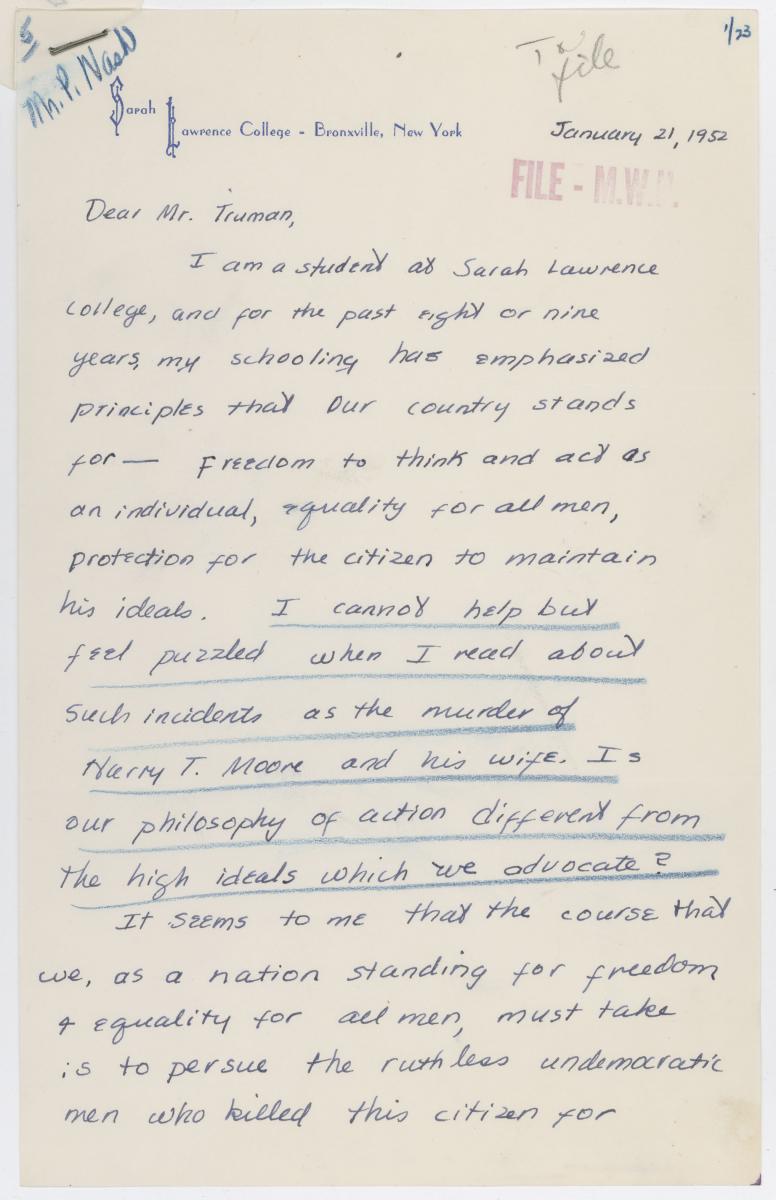 5
Mr. P. Nash
file
1/23
Sarah Lawrence College - Bronxville, New York
January 21, 1952
FILE - M.W.
Dear Mr. Truman,
I am a student at Sarah Lawrence
College, and for the past eight or nine
years, my schooling has emphasized
principles that our country stands
for — Freedom to think and act as
an individual, equality for all men,
protection for the citizen to maintain
his ideals. I cannot help but
feel puzzled when I read about
such incidents as the murder of
Harry T. Moore and his wife. Is
our philosophy of action different from
the high ideals which we advocate?
It seems to me that the course that
we, as a nation standing for freedom
& equality for all men, must take
is to persue the ruthless undemocratic
men who killed this citizen for